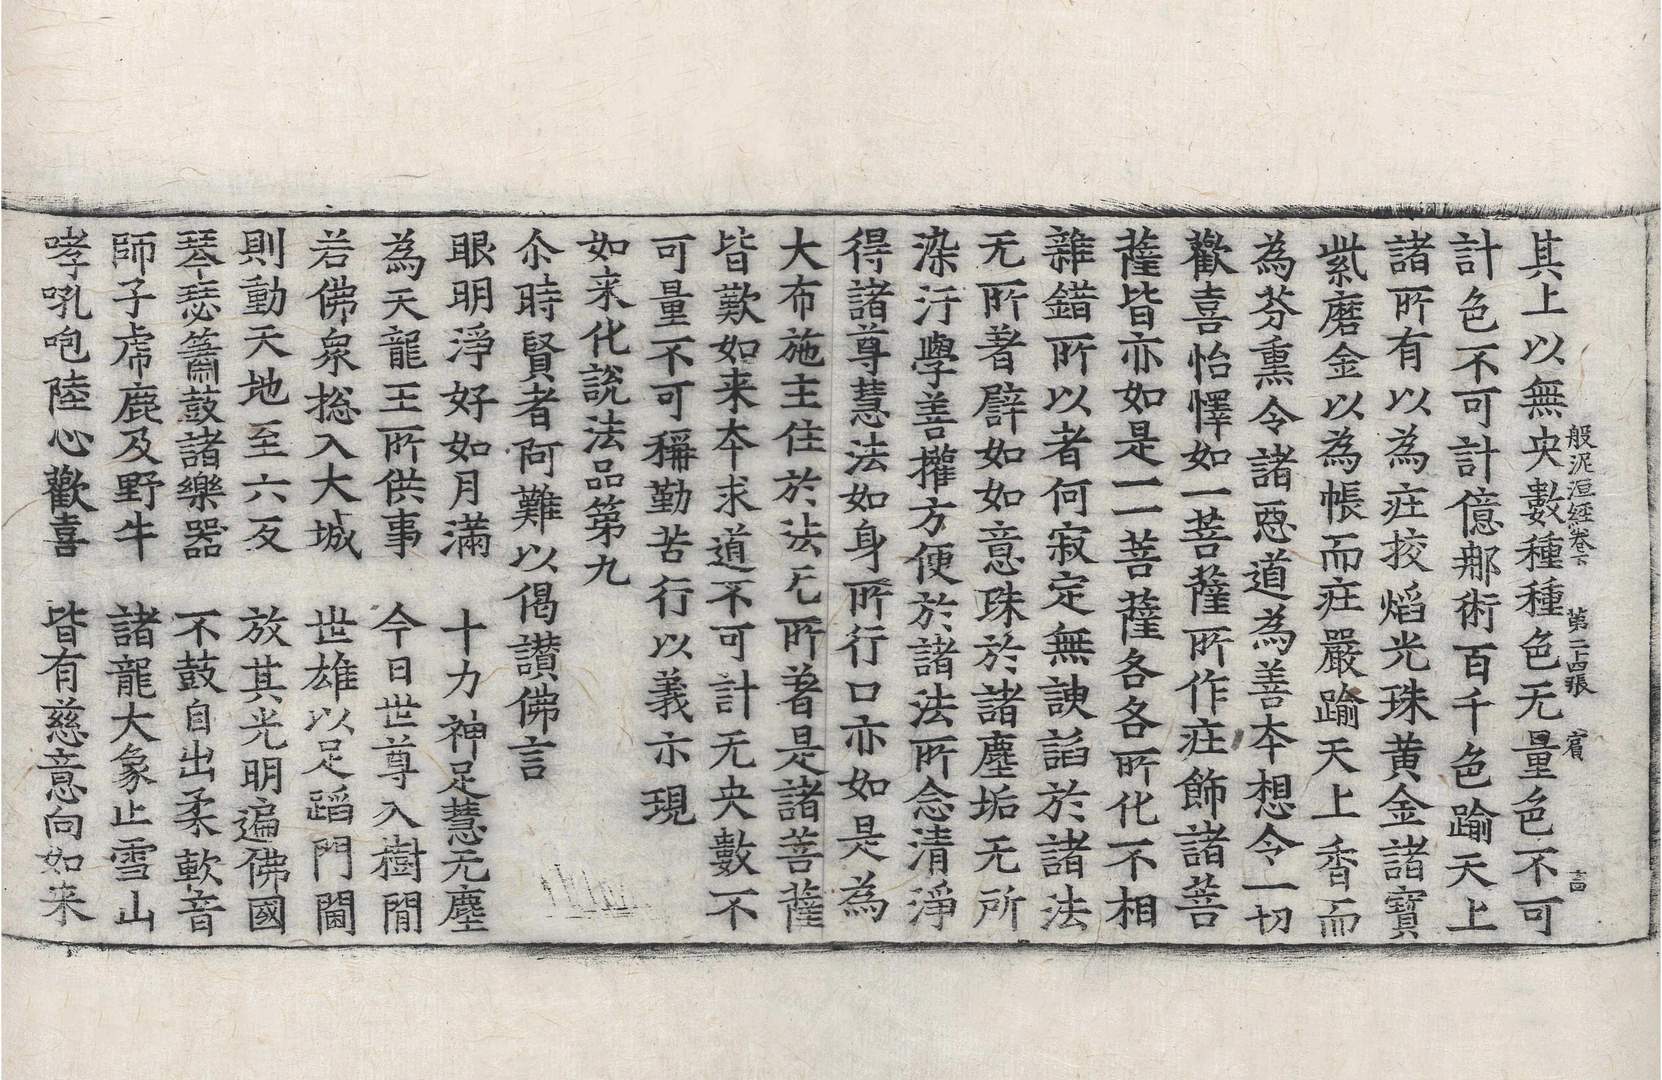 般泥洹経巻下 第二四張 賓 言
其上以無央數種種色无量色不可
計色不可計億那術百千色踰天上
諸所有以為庄挍焰光珠黄金諸寶
紫磨金以為帳而庄嚴踰天上香而
為芬熏令諸惡道為善本想令一切
歡喜怡懌如一菩薩所作庄飾諸菩
薩皆亦如是一一菩薩各各所化不相
雜錯所以者何寂定無諛諂於諸法
无所著譬如如意珠於諸塵垢无所
染汙學善權方便於諸法所念清淨
得諸尊慧法如身所行口亦如是為
大布施主住於法无所著是諸菩薩
皆歎如来本求道不可計无央數不
可量不可稱勤苦行以義亦現
如来化說法品第九
尒時賢者阿難以偈讃佛言
眼明淨好如月滿 十力神足慧无塵
為天龍王所供事 今日世尊入樹間
若佛衆揔入大城 世雄以足蹈門閫
則動天地至六反 放其光明遍佛國
琴瑟簫鼓諸樂器 不鼓自出柔軟音
師子虎鹿及野牛 諸龍大象止雪山
哮吼咆陸心歡喜 皆有慈意向如来